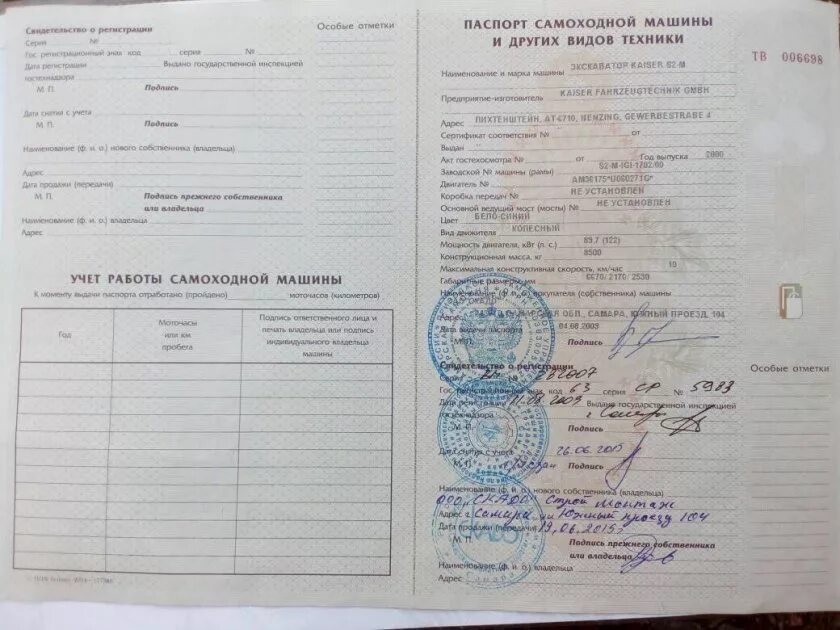 Особые отметки
Свидетельство о регистрации
Серия №
Гос. регистрационный знак код серия №
Дата регистрации Выдано государственной инспекцией
гостехнадзора
М. П. Подпись
Дата снятия с учета
М. П. Подпись
Наименование (ф. и. о.) нового собственника (владельца)
Адрес
Дата продажи (передачи)
М. П. Подпись прежнего собственника
или владельца
Наименование (ф. и. о.) владельца
Адрес
УЧЕТ РАБОТЫ САМОХОДНОЙ МАШИНЫ
К моменту выдачи паспорта отработано (пройдено) моточасов (километров)
Год
Моточасы
или км
пробега
Подпись ответственного лица и
печать владельца или подпись
индивидуального владельца
машины
ПАСПОРТ САМОХОДНОЙ МАШИНЫ
И ДРУГИХ ВИДОВ ТЕХНИКИ
ТВ 006698
Наименование и марка машины ЭКСКАВАТОР KAISER S2-M
Предприятие-изготовитель KAISER FAHRZEUGTECHNIK GMBH
Адрес ЛИХТЕНШТЕЙН, AT4710, NENZING, GEWERBESTRAßE 4
Сертификат соответствия № от
Выдан
Акт гостехосмотра № от Год выпуска 2000
Заводской № машины (рамы) S2-M-IGI-1702/00
Двигатель № AM36175*U060271G*
Коробка передач № НЕ УСТАНОВЛЕН
Основной ведущий мост (мосты) № НЕ УСТАНОВЛЕН
Цвет БЕЛО-СИНИЙ
Вид движителя КОЛЕСНЫЙ
Мощность двигателя, кВт (л. с.) 89.7 (122)
Конструкционная масса, кг 8500
Максимальная конструктивная скорость, км/час 10
Габаритные размеры, мм 6670/ 2170/ 2530
Наименование (ф. и. о.) покупателя (собственника) машины
Адрес ОБЛ., САМАРА, ЮЖНЫЙ ПРОЕЗД, 104
Дата выдачи паспорта 04.08.2003
М. П. Подпись
Свидетельство о регистрации
Особые отметки
Серия №
Гос. регистрационный знак код 63 серия СР № 5983
Дата регистрации Выдано государственной инспекцией
гостехнадзора
М. П. Подпись
Дата снятия с учета 26.06.2015
М. П. Подпись
Наименование (ф. и. о.) нового собственника (владельца)
Строй Монтаж
Адрес г. Самара, Южный проезд 104
Дата продажи (передачи) 19.06.2015
М. П. Подпись прежнего собственника
или владельца
Наименование (ф. и. о.) владельца
Адрес